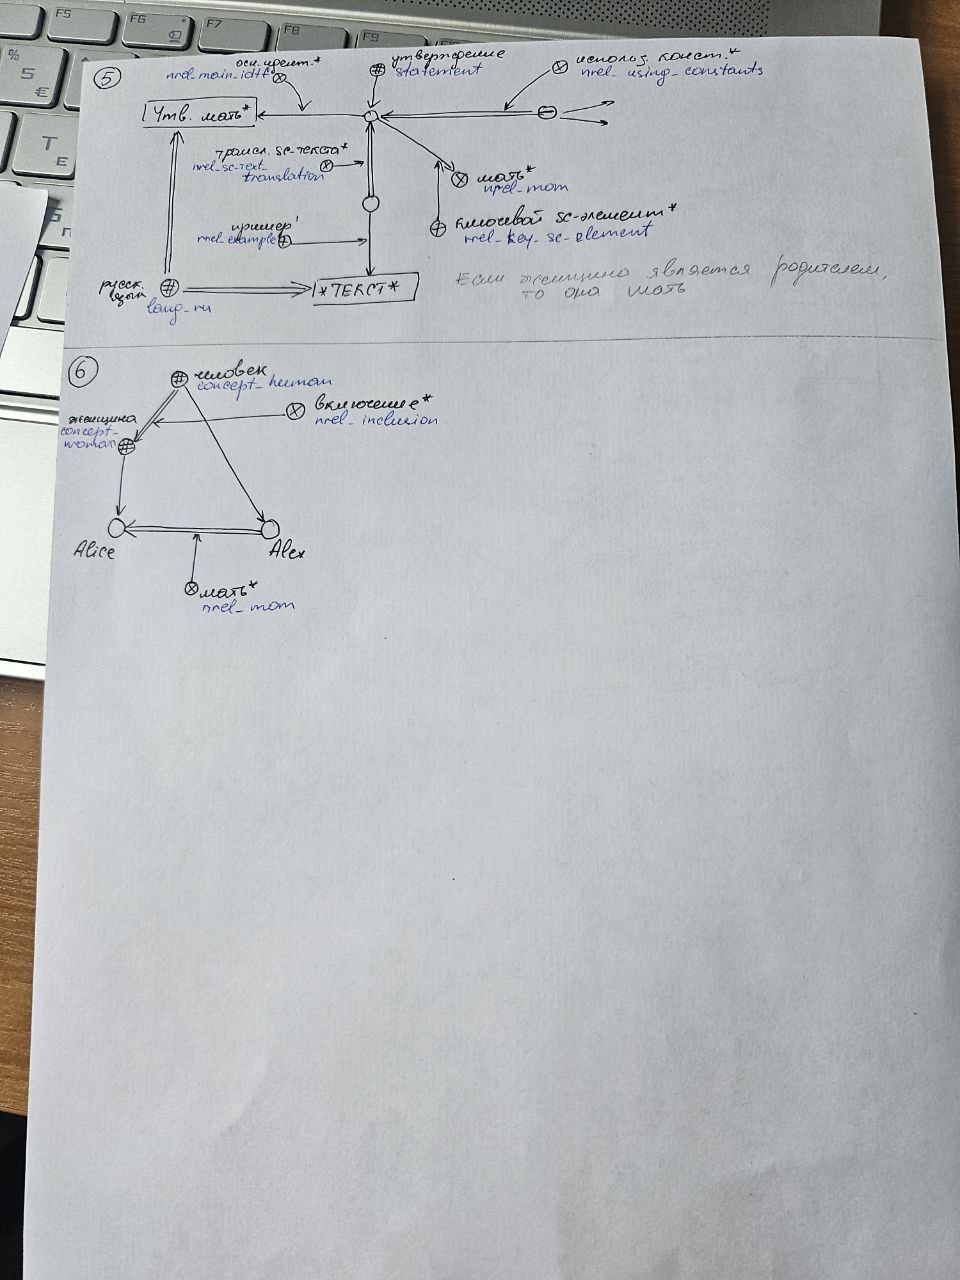 F5
F6
F7
F8
F9
%
5
€
T
E
5
осн. идент.*
nrel_main_idtf
утверждение
statement
использ. конст.*
nrel_using_constants
Утв. мать*
трансл. sc-текста*
nrel_sc-text_
translation
мать*
nrel_mom
пример'
rrel_example
ключевой sc-элемент*
rrel_key_sc-element
русск.
язык
lang_ru
*ТЕКСТ*
Если женщина является родителем,
то она мать
6
человек
concept_human
женщина
concept-
woman
включение*
nrel_inclusion
Alice
Alex
мать*
nrel_mom